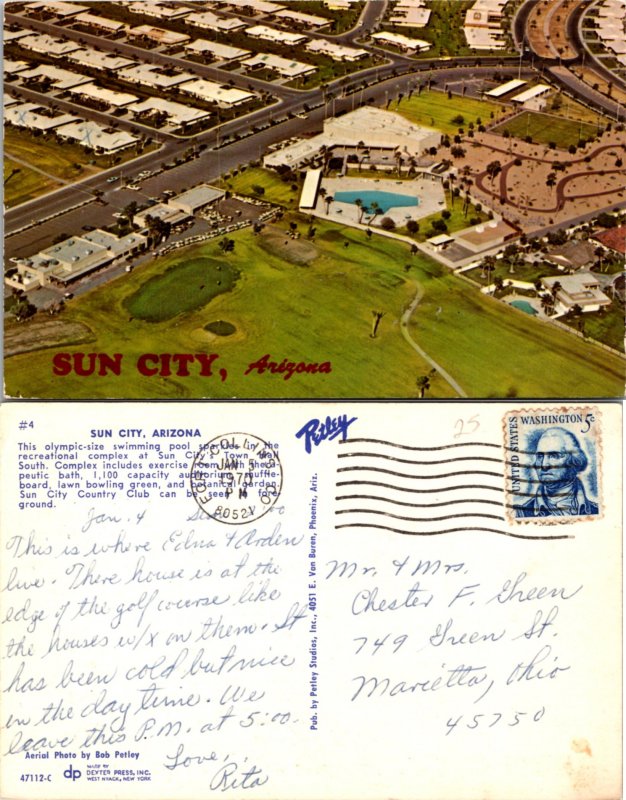 SUN CITY, Arizona
#4
SUN CITY, ARIZONA
This olympic-size swimming pool sparkles in the
recreational complex at Sun City's Town Hall
South. Complex includes exercise room with thera-
peutic bath, 1,100 capacity auditorium, shuffle-
board, lawn bowling green, and botanical garden.
Sun City Country Club can be seen in fore-
ground.
Jan. 4
This is where Edna & Arden
live. There house is at the
edge of the golf course like
the houses w/x on them. It
has been cold but nice
in the day time. We
leave this P.M. at 5:00.
Love,
Rita
Aerial Photo by Bob Petley
47112-C
dp
MADE BY
DEXTER PRESS, INC.
WEST NYACK, NEW YORK
Petley
Pub. by Petley Studios, Inc., 4051 E. Van Buren, Phoenix, Ariz.
JAN 5
PM
80521
25
UNITED STATES
WASHINGTON 5c
Mr. & Mrs.
Chester F. Green
749 Green St.
Marietta, Ohio
45750